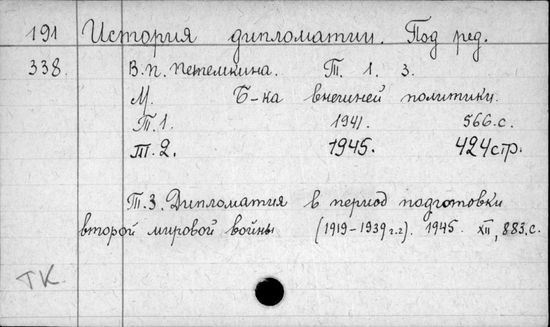 191 История дипломатии. Под ред.
338. В.П. Петемкина. Т. 1. 3.
М. Б-ка внешней политики.
Т.1. 1941. 566.с.
Т.2. 1945. 424стр.
Т.3. Дипломатия в период подготовки
второй мировой войны (1919-1939 г.г). 1945. XII, 883.с.
ТК.